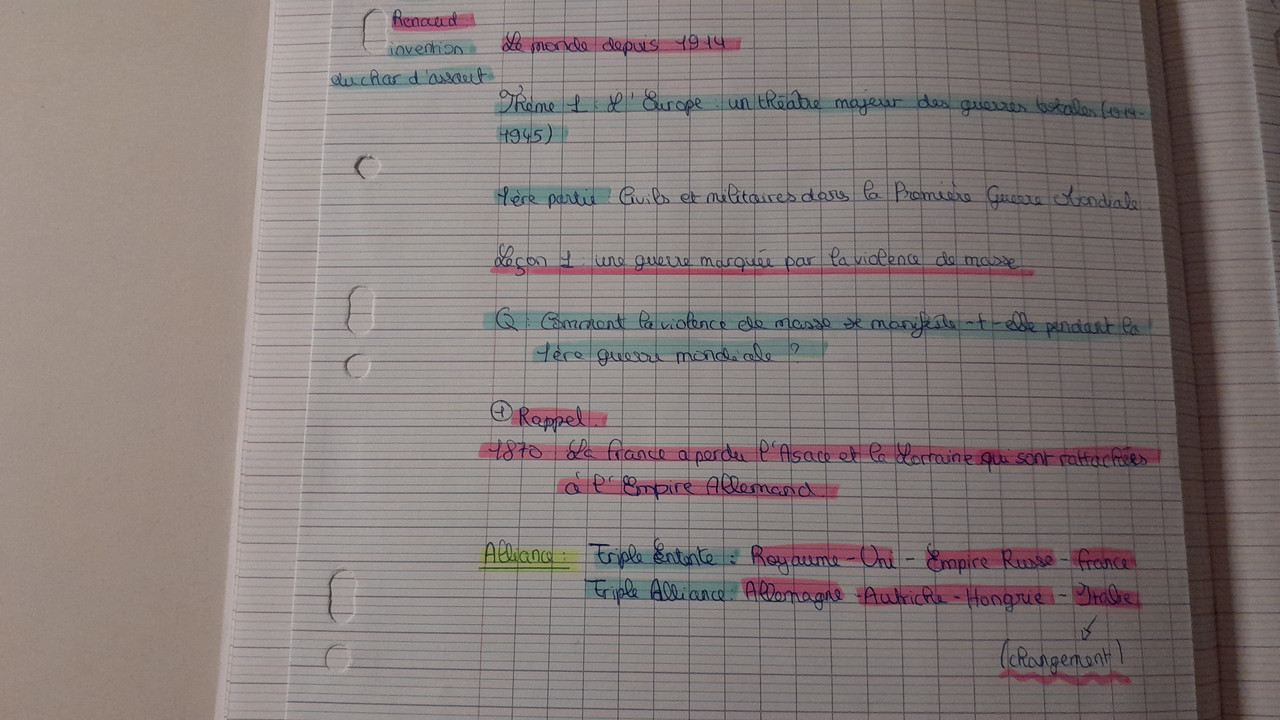 Renaud
invention
du char d'assaut
Le monde depuis 1914
Thème 1 : L'Europe : un théâtre majeur des guerres totales (1914-
1945)
1ère partie Civils et militaires dans la Première Guerre Mondiale
Leçon 1 : une guerre marquée par la violence de masse
Q : Comment la violence de masse se manifeste-t-elle pendant la
1ère guerre mondiale ?
+ Rappel.
1870 La france a perdu l'Asace et la Lorraine qui sont rattachées
à l'Empire Allemand
Alliance : Triple Entente : Royaume-Uni - Empire Russe - france
Triple Alliance : Allemagne - Autriche-Hongrie - Italie
(changement)